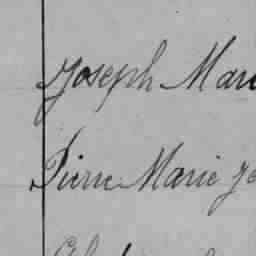 Joseph Mari
Pierre Marie Jo